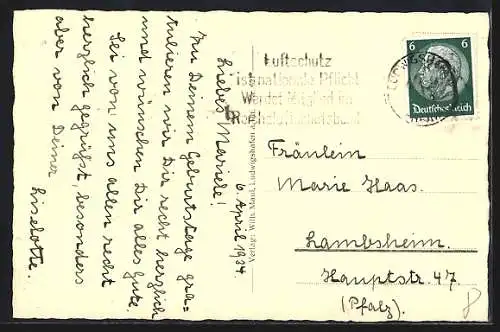 6. April 1934.
Liebes Mariele!
Zu Deinem Geburtstage gra-
tulieren wir Dir recht herzlich
und wünschen Dir alles Gute.
Sei von uns allen recht
herzlich gegrüßt, besonders
aber von Deiner
Liselotte.
Luftschutz
ist nationale Pflicht
Werdet Mitglied im
Reichsluftschutzbund
6 6
Deutsches Reich
Verlag: Wilh. Ludwigshafen a.
Fräulein
Marie Haas.
Lambsheim.
Hauptstr. 47
(Pfalz).